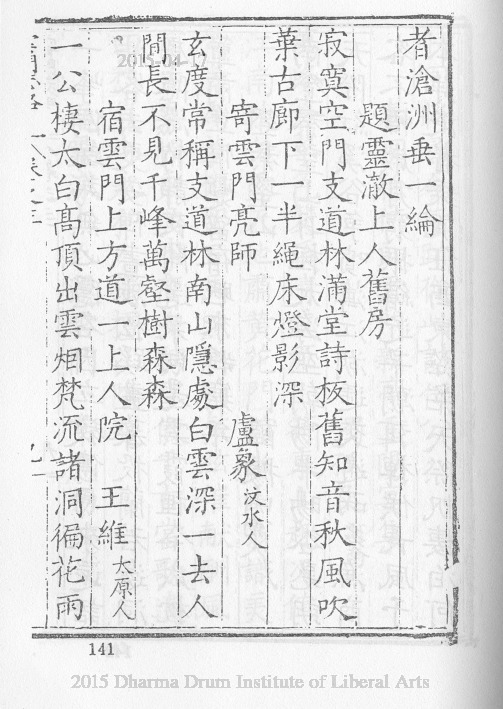 者滄洲垂一綸
題靈澈上人舊房
寂寞空門支道林滿堂詩板舊知音秋風吹
葉古廊下一半繩床燈影深
寄雲門亮師 盧象 汶水人
玄度常稱支道林南山隱處白雲深一去人
間長不見千峰萬壑樹森森
宿雲門上方道一上人院 王維 太原人
一公棲太白高頂出雲烟梵流諸洞徧花雨
2015-04-17
141
2015 Dharma Drum Institute of Liberal Arts